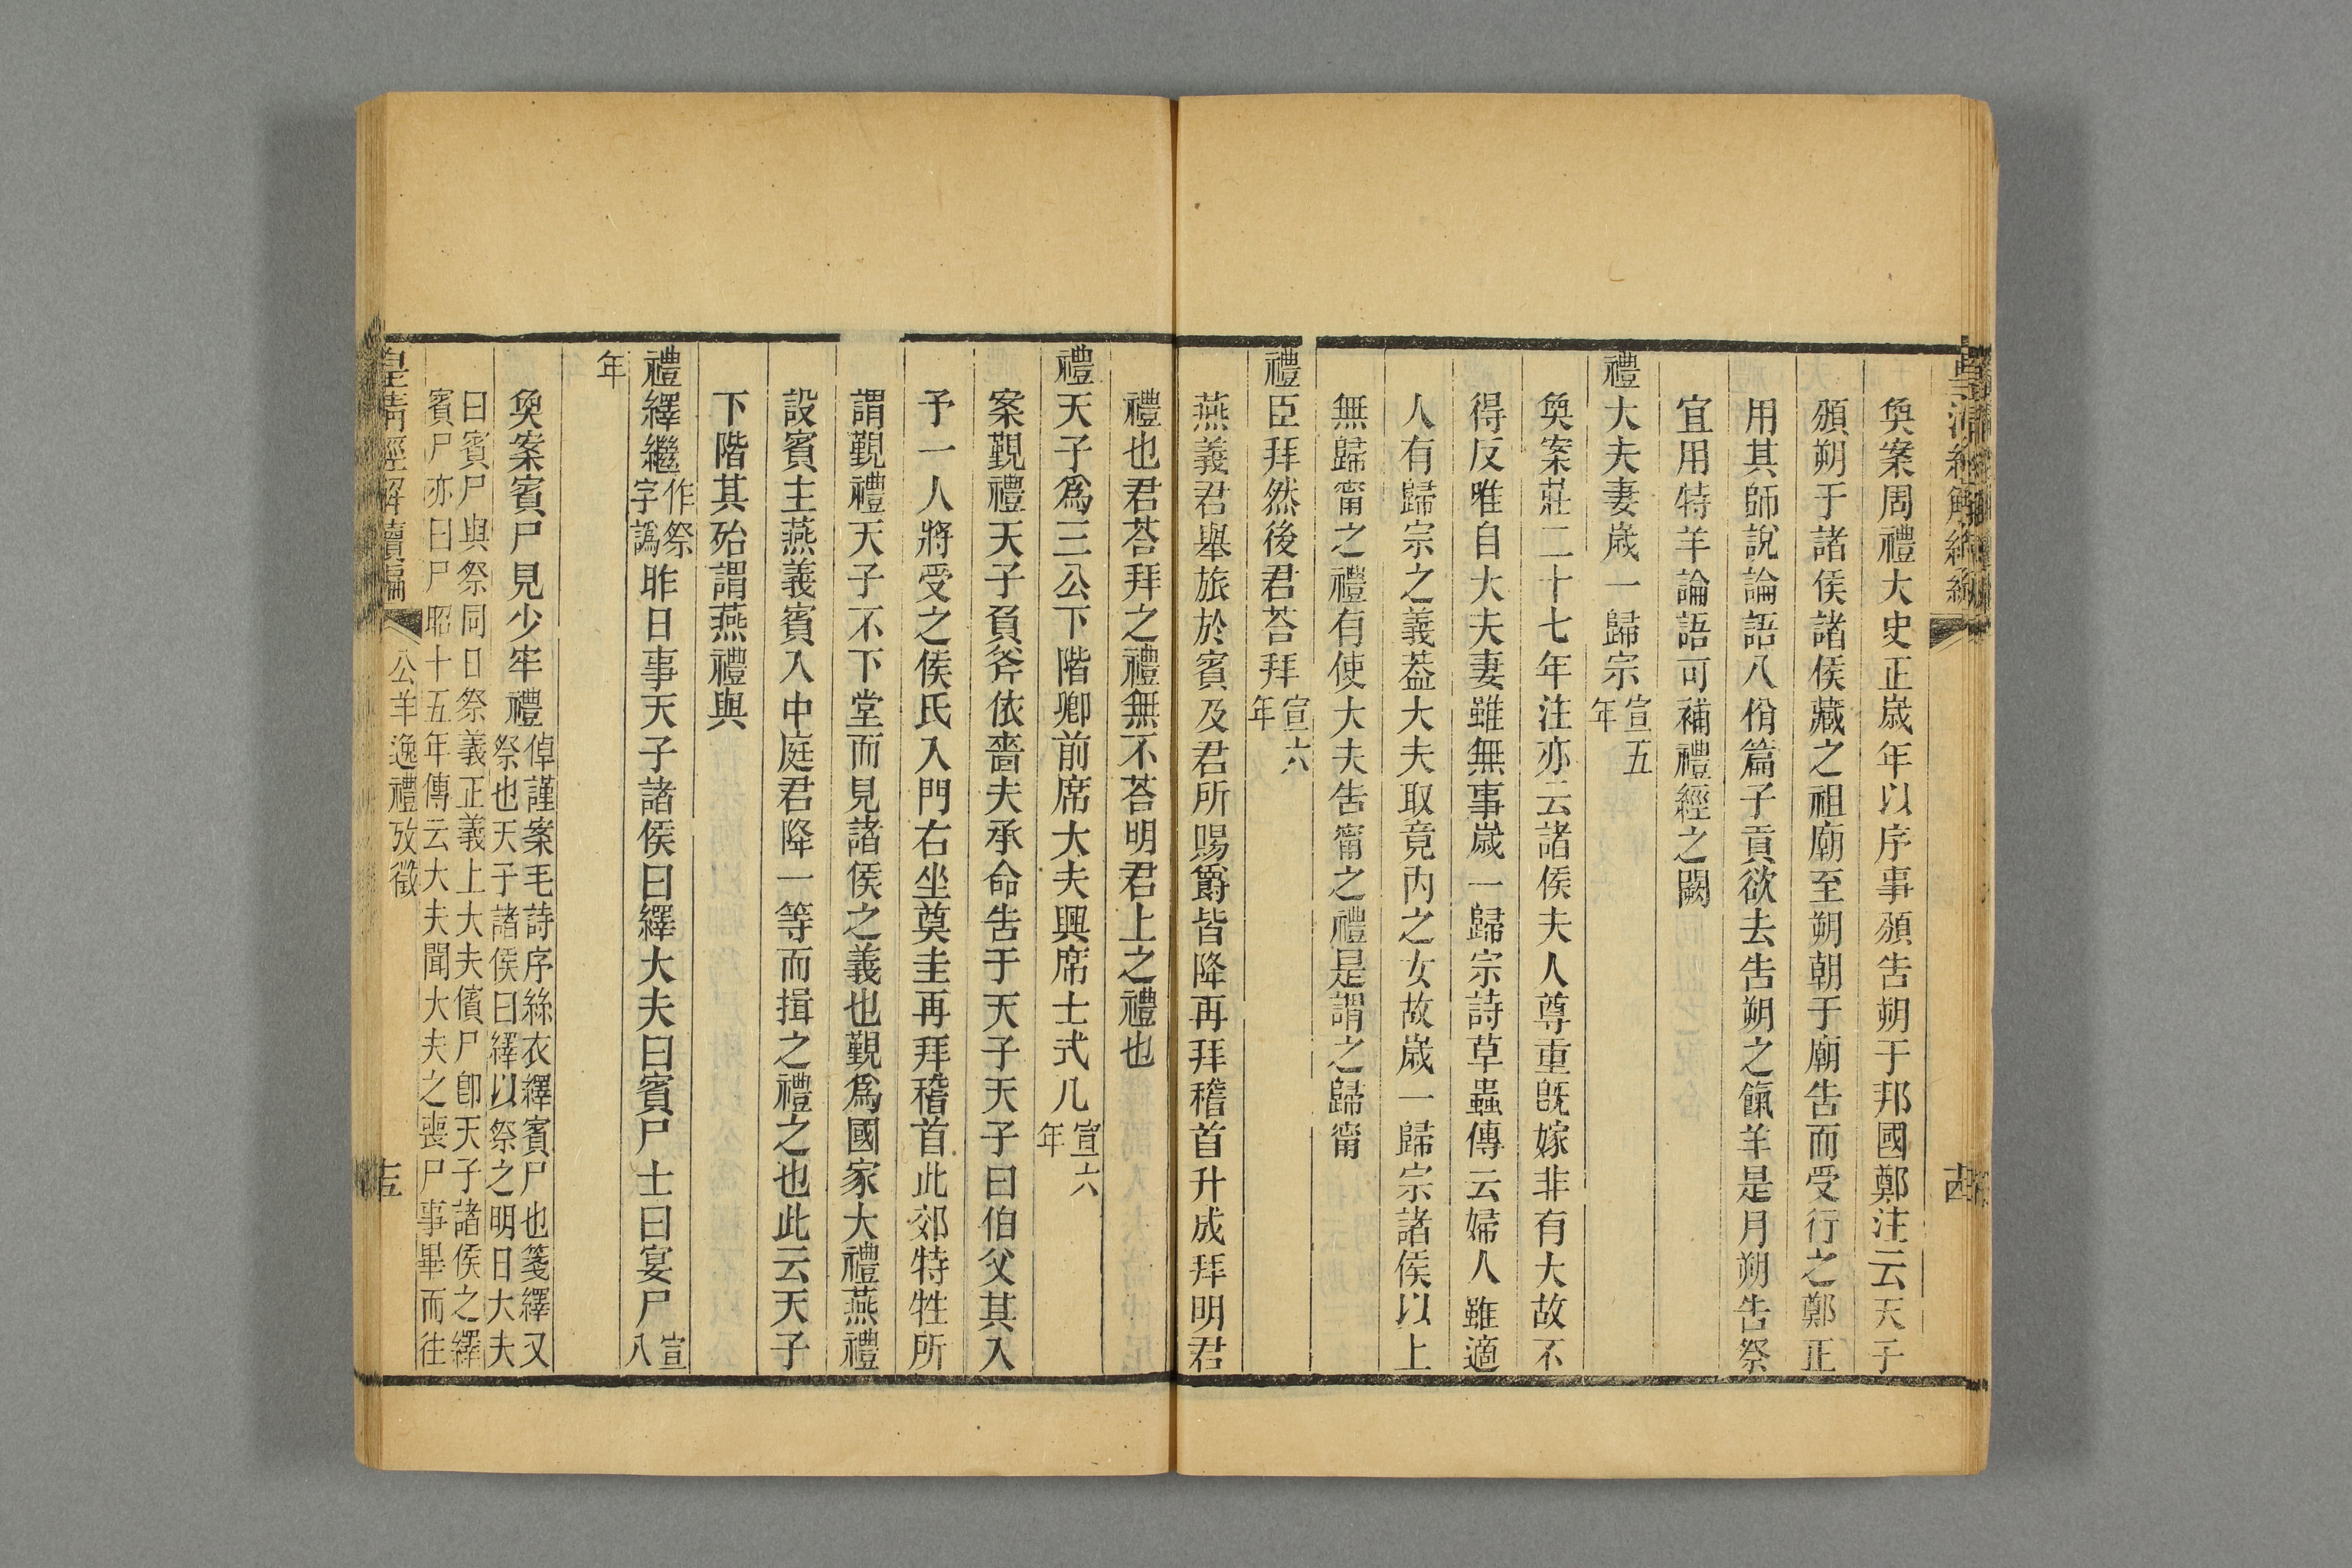 奐案周禮大史正歲年以序事頒告朔于邦國鄭注云天子
頒朔于諸侯諸侯藏之祖廟至朔朝于廟告而受行之鄭正
用其師說論語八佾篇子貢欲去告朔之餼羊是月朔告祭
宜用特羊論語可補禮經之闕
禮大夫妻歲一歸宗宣五年
奐案莊二十七年注亦云諸侯夫人尊重旣嫁非有大故不
得反唯自大夫妻雖無事歲一歸宗詩草蟲傳云婦人雖適
人有歸宗之義葢大夫取竟內之女故歲一歸宗諸侯以上
無歸甯之禮有使大夫告甯之禮是謂之歸甯
禮臣拜然後君荅拜宣六年
燕義君舉旅於賓及君所賜爵皆降再拜稽首升成拜明君
禮也君荅拜之禮無不荅明君上之禮也
禮天子爲三公下階卿前席大夫興席士式几宣六年
案覲禮天子負斧依嗇夫承命告于天子天子曰伯父其入
予一人將受之侯氏入門右坐奠圭再拜稽首此郊特牲所
謂覲禮天子不下堂而見諸侯之義也覲爲國家大禮燕禮
設賓主燕義賓入中庭君降一等而揖之禮之也此云天子
下階其殆謂燕禮與
禮繹繼作祭字譌昨日事天子諸侯曰繹大夫曰賓尸士曰宴尸宣八
年
奐案賓尸見少牢禮倬謹案毛詩序絲衣繹賓尸也箋繹又
祭也天子諸侯曰繹以祭之明日大夫
曰賓尸與祭同日祭義正義上大夫儐尸卽天子諸侯之繹
賓尸亦曰尸昭十五年傳云大夫聞大夫之喪尸事畢而往
皇清經解續編
公羊逸禮攷徵